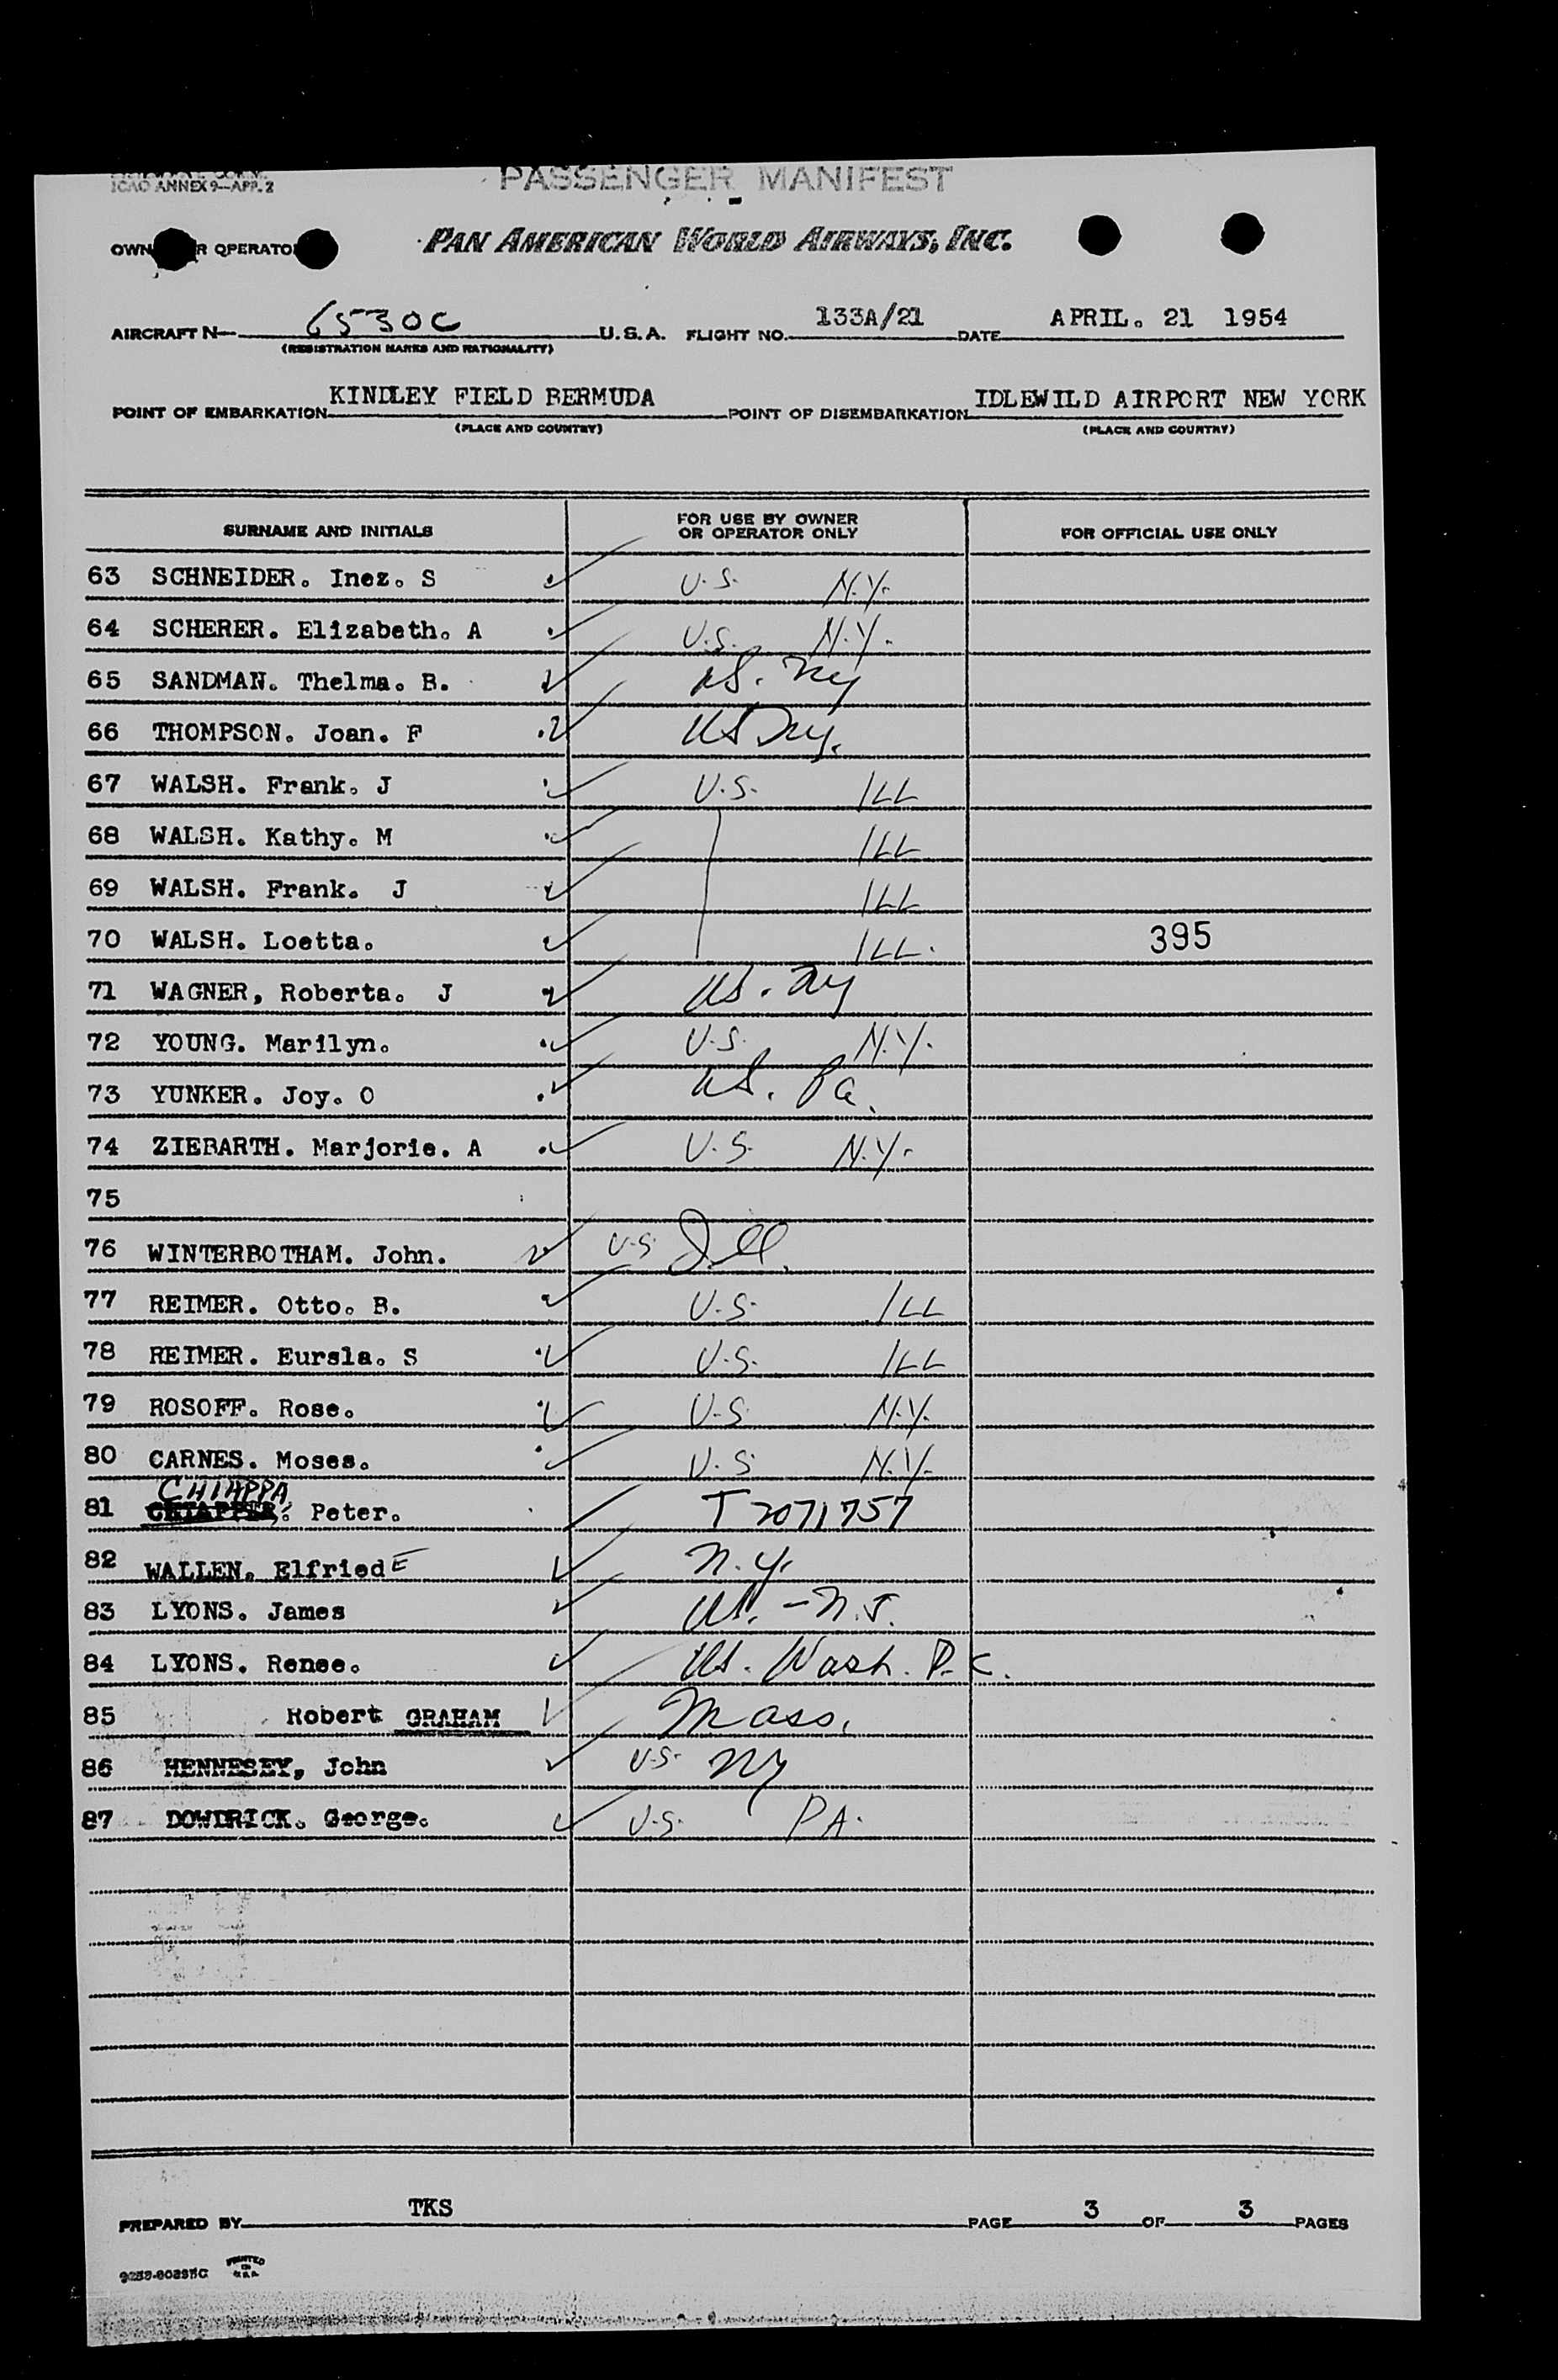 ICAO ANNEX 9—APP. 2
PASSENGER MANIFEST
OWN R OPERATO PAN AMERICAN WORLD AIRWAYS, INC.
AIRCRAFT N— 6530C U.S.A. FLIGHT NO. 133A/21 DATE APRIL. 21 1954
(REGISTRATION MARKS AND NATIONALITY)
POINT OF EMBARKATION KINDLEY FIELD BERMUDA POINT OF DISEMBARKATION IDLEWILD AIRPORT NEW YORK
(PLACE AND COUNTRY) (PLACE AND COUNTRY)
SURNAME AND INITIALS FOR USE BY OWNER OR OPERATOR ONLY FOR OFFICIAL USE ONLY
63 SCHNEIDER. Inez. S U.S. N.Y.
64 SCHERER. Elizabeth. A U.S. N.Y.
65 SANDMAN. Thelma. B. US. NY
66 THOMPSON. Joan. F US NY.
67 WALSH. Frank. J U.S. ILL
68 WALSH. Kathy. M ILL
69 WALSH. Frank. J ILL
70 WALSH. Loetta. ILL. 395
71 WAGNER, Roberta. J US. NY
72 YOUNG. Marilyn. U.S. N.Y.
73 YUNKER. Joy. O US. Pa.
74 ZIEBARTH. Marjorie. A U.S. N.Y.
75
76 WINTERBOTHAM. John. U.S. Ill.
77 REIMER. Otto. B. U.S. ILL
78 REIMER. Eursla. S U.S. ILL
79 ROSOFF. Rose. U.S N.Y.
80 CARNES. Moses. U.S. N.Y.
CHIAPPA
81 Peter. T 2071757
82 WALLEN. ElfriedE N.Y.
83 LYONS. James US. - N.J.
84 LYONS. Renee. US. Wash. D.C.
85 Robert GRAHAM Mass.
86 HENNESEY, John U.S. NY
87 DOWDRICK. George. U.S. PA.
PREPARED BY TKS PAGE 3 OF 3 PAGES
PRINTED IN U.S.A.